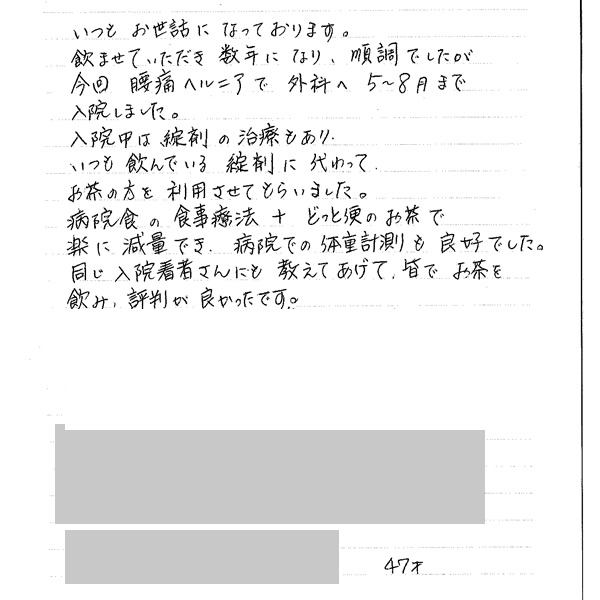 いつも お世話に なっております。
飲ませていただき 数年に なり、順調でしたが
今回 腰痛ヘルニアで 外科へ 5〜8月まで
入院しました。
入院中は 綻剤の 治療もあり、
いつも 飲んでいる 綻剤に 代わって、
お茶の方を 利用させてもらいました。
病院食の 食事療法 + どっと便の お茶で
楽に 減量でき、病院での 体重計測も 良好でした。
同じ入院看者さんにも 教えてあげて、皆で お茶を
飲み、評判が 良かったです。
47才